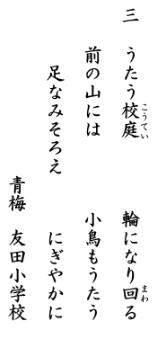 三　うたう校庭　輪になり回る
前の山には　小鳥もうたう
足なみそろえ　にぎやかに
青梅　友田小学校
こうてい
まわ